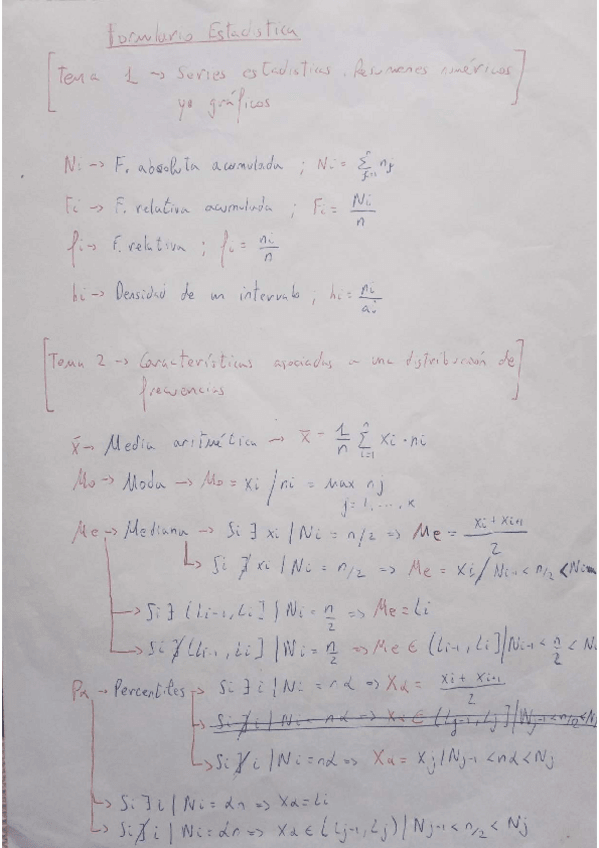 Formulario Estadística
[Tema 1 → Series estadísticas. Resúmenes numéricos
y gráficos]
Ni → F. absoluta acumulada ; Ni = Σ nj
Fi → F. relativa acumulada ; Fi = Ni/n
fi → F. relativa ; fi = ni/n
hi → Densidad de un intervalo ; hi = ni/ai
[Tema 2 → Características asociadas a una distribución de
frecuencias]
x̄ → Media aritmética → x̄ = 1/n Σ_{i=1}^{n} xi · ni
Mo → Moda → Mo = xi / ni = max nj
j = 1, ..., k
Me → Mediana → Si ∃ xi | Ni = n/2 ⇒ Me = (xi + xi+1)/2
→ Si ∄ xi | Ni = n/2 ⇒ Me = xi / Ni-1 < n/2 <
→ Si ∃ (Li-1, Li] | Ni = n/2 ⇒ Me = Li
→ Si ∄ (Li-1, Li] | Ni = n/2 ⇒ Me ∈ (Li-1, Li] | Ni-1 < n/2 < N
Pα → Percentiles → Si ∃ i | Ni = nα ⇒ Xα = (xi + xi+1)/2
→ Si ∄ i | Ni = nα ⇒ Xα = Xj / Nj-1 < nα < Nj
→ Si ∃ i | Ni = αn ⇒ Xα = Li
→ Si ∄ i | Ni = αn ⇒ Xα ∈ (Lj-1, Lj) | Nj-1 < n/2 < Nj